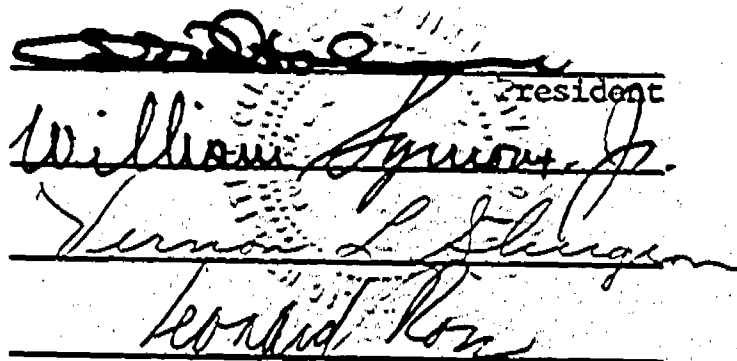 President
William Symons, Jr.
Vernon L. Sturgeon
Leonard Ross